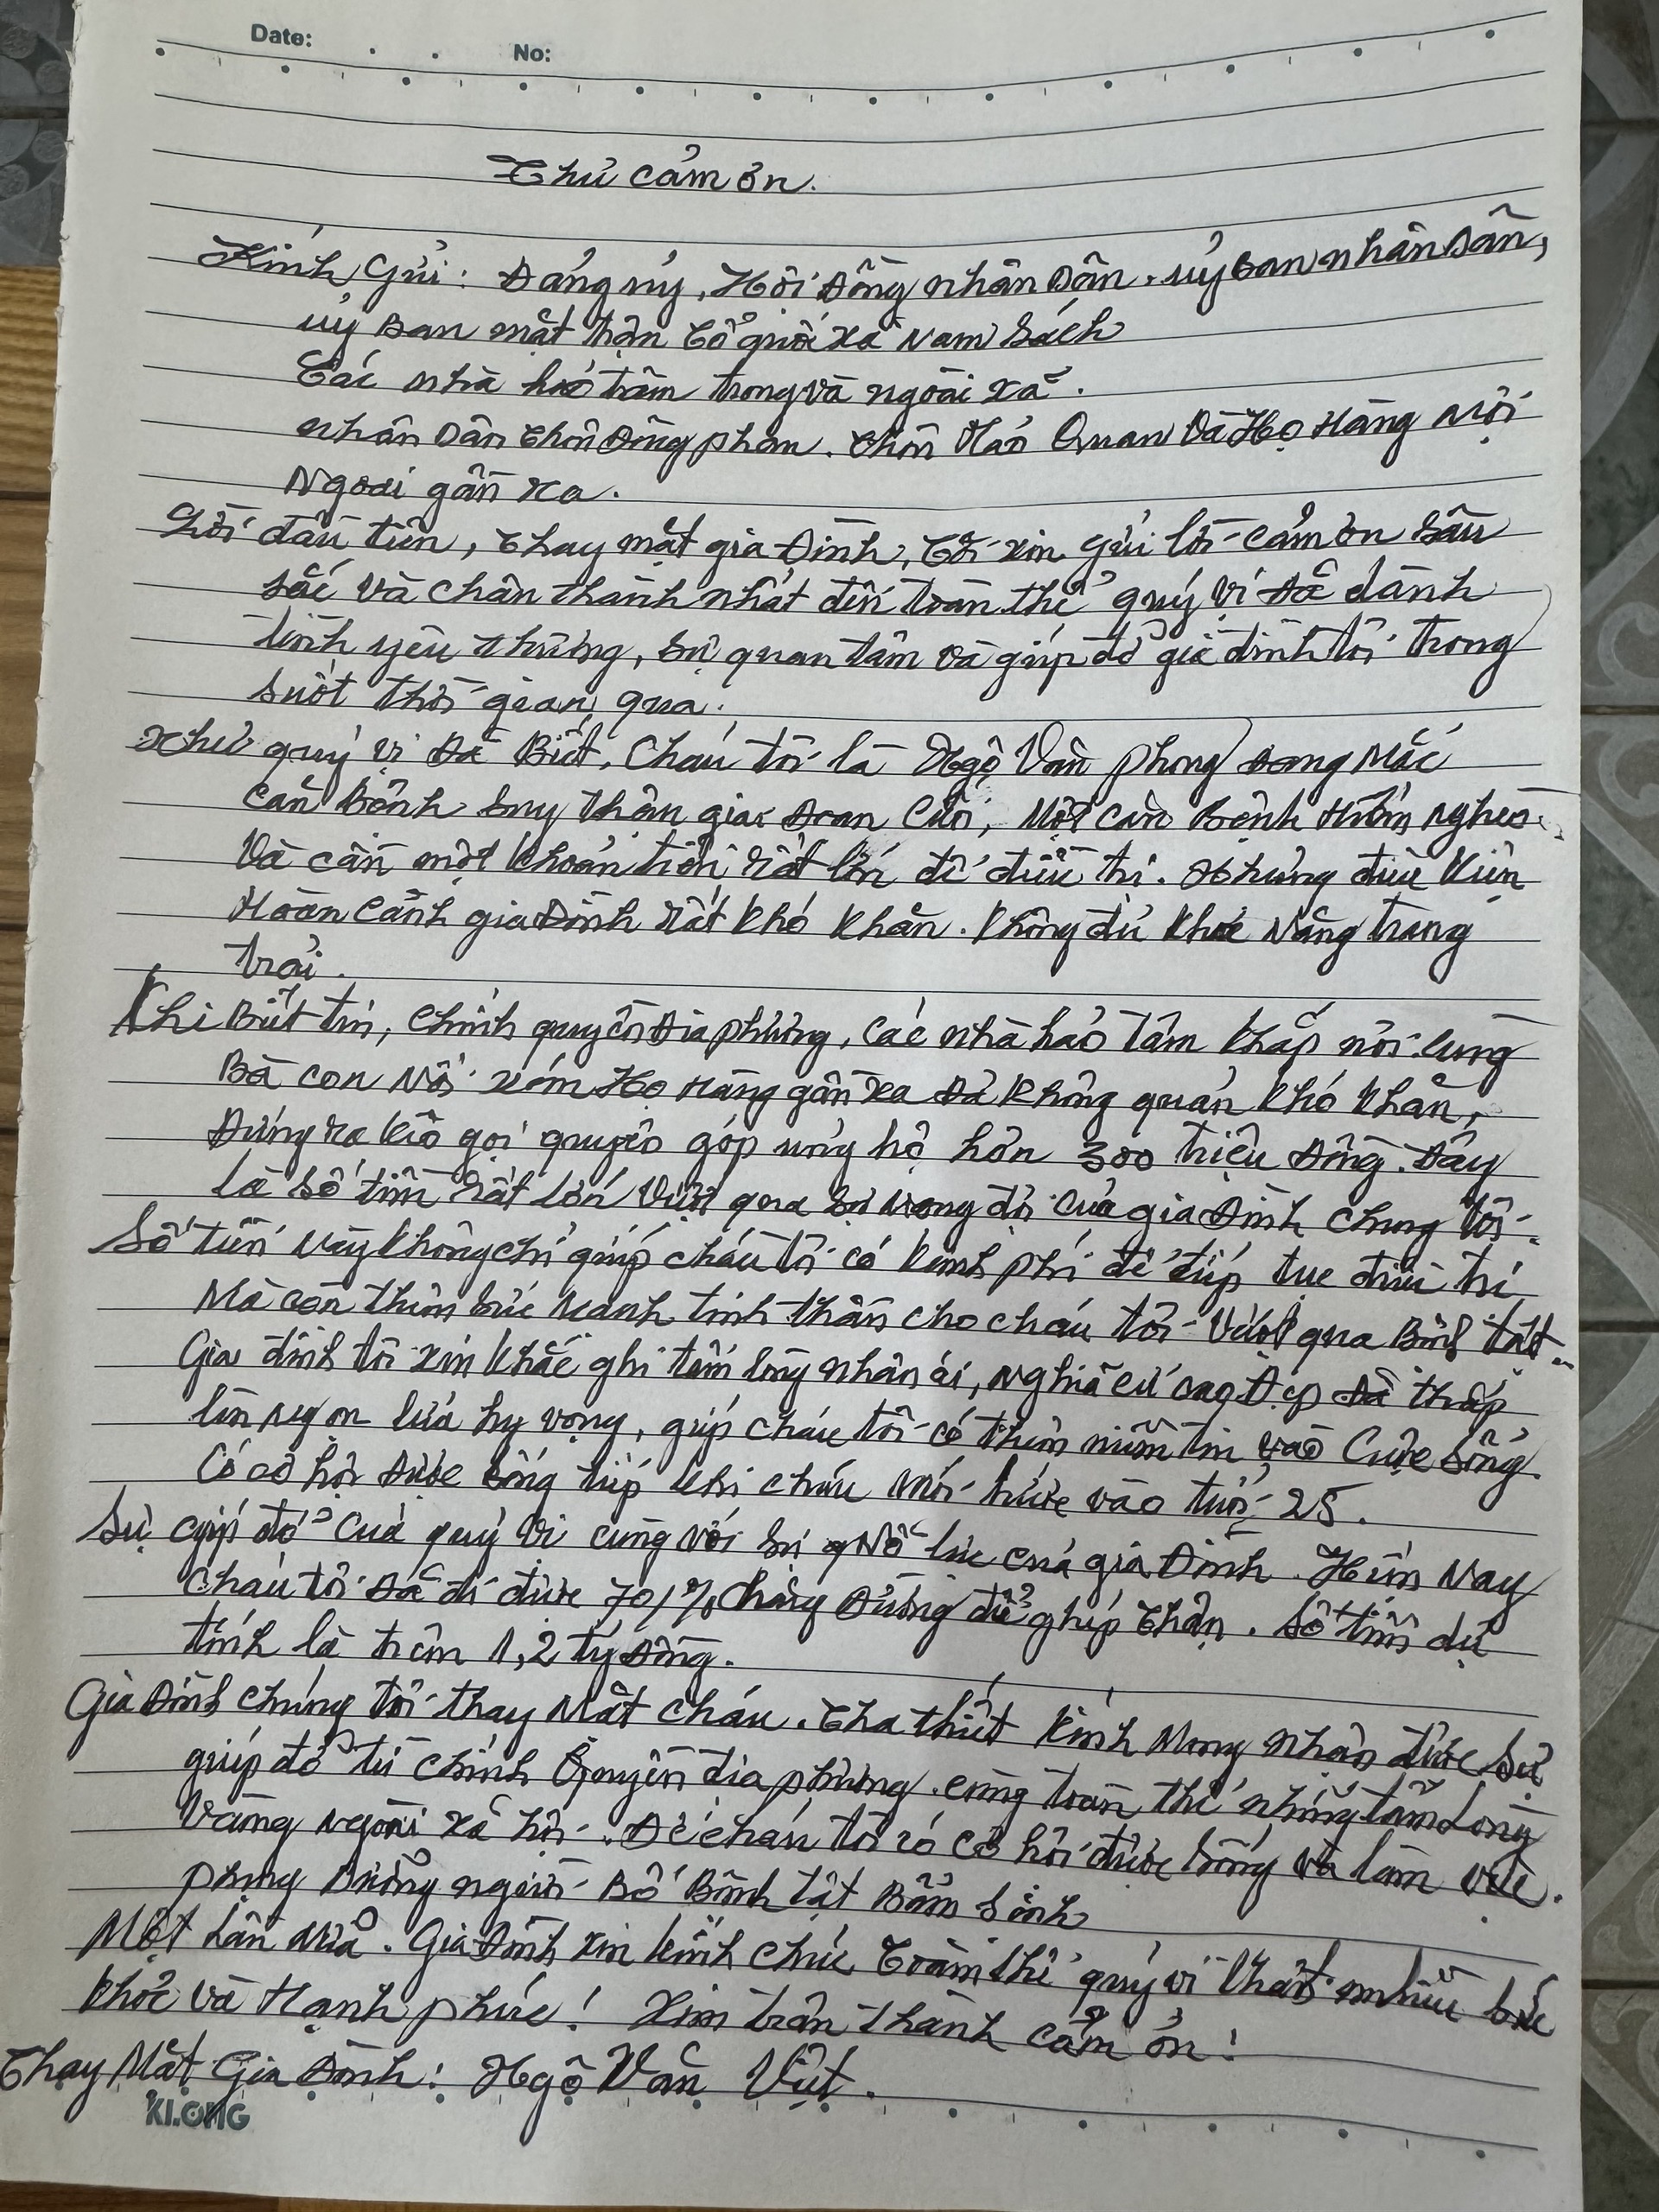 Date: No:
Thư cảm ơn.
Kính Gửi: Đảng ủy, Hội Đồng nhân Dân. ủy Ban nhân Dân,
ủy Ban mặt trận Tổ quốc xã Nam Sách
Các nhà hảo tâm trong và ngoài xã.
nhân Dân thôn Đồng phan. thôn Quan Và Họ Hàng Nội
Ngoại gần xa.
Lời đầu tiên, thay mặt gia Đình, Tôi xin gửi lời cảm ơn sâu
sắc và chân thành nhất đến toàn thể quý vị Đã dành
tình yêu thương, sự quan tâm và giúp đỡ gia đình tôi trong
suốt thời gian qua.
Như quý vị Đã Biết, Cháu tôi là Ngô Văn Phong Đang Mắc
căn Bệnh suy thận giai Đoạn Cuối, Một căn Bệnh Hiểm Nghèo
Và cần một khoản tiền rất lớn để điều trị. Nhưng điều kiện
Hoàn Cảnh gia Đình rất khó khăn. Không đủ khả năng trang
trải.
Khi Biết tin, Chính quyền Địa phương, các nhà hảo tâm khắp nơi cùng
Bà con Nối xóm Họ Hàng gần xa Đã không quản khó khăn,
Đứng ra kêu gọi quyên góp ủng hộ hơn 300 triệu Đồng. Đây
là số tiền rất lớn Vượt qua sự mong đợi của gia Đình chúng tôi.
Số tiền này không chỉ giúp cháu tôi có kinh phí để tiếp tục điều trị
Mà còn thêm sức mạnh tinh thần cho cháu tôi Vượt qua Bệnh tật.
Gia đình tôi xin khắc ghi tấm lòng nhân ái, nghĩa cử cao Đẹp đã thắp
lên ngọn lửa hy vọng, giúp cháu tôi có thêm niềm tin vào Cuộc sống.
Có cơ hội Được sống tiếp khi cháu mới bước vào tuổi 25.
Sự giúp đỡ Của quý Vị cùng với sự Nỗ lực của gia Đình. Hiện Nay
Cháu tôi Đã đi được 70% chặng Đường để ghép Thận. Số tiền dự
tính là trên 1,2 tỷ Đồng.
Gia Đình chúng tôi thay Mặt cháu. Tha thiết kính Mong nhận được sự
giúp đỡ từ chính Quyền địa phương. cùng toàn thể những tấm Lòng
Vàng Ngoài xã hội. Để cháu tôi có cơ hội được sống và làm việc.
Phụng Dưỡng người Bố Bệnh tật Bẩm sinh
Một lần nữa. Gia Đình xin kính chúc Toàn thể quý vị thật nhiều sức
khỏe và Hạnh phúc! Xin trân thành cảm ơn!
Thay Mặt Gia Đình: Ngô Văn Vượt.
KLONG